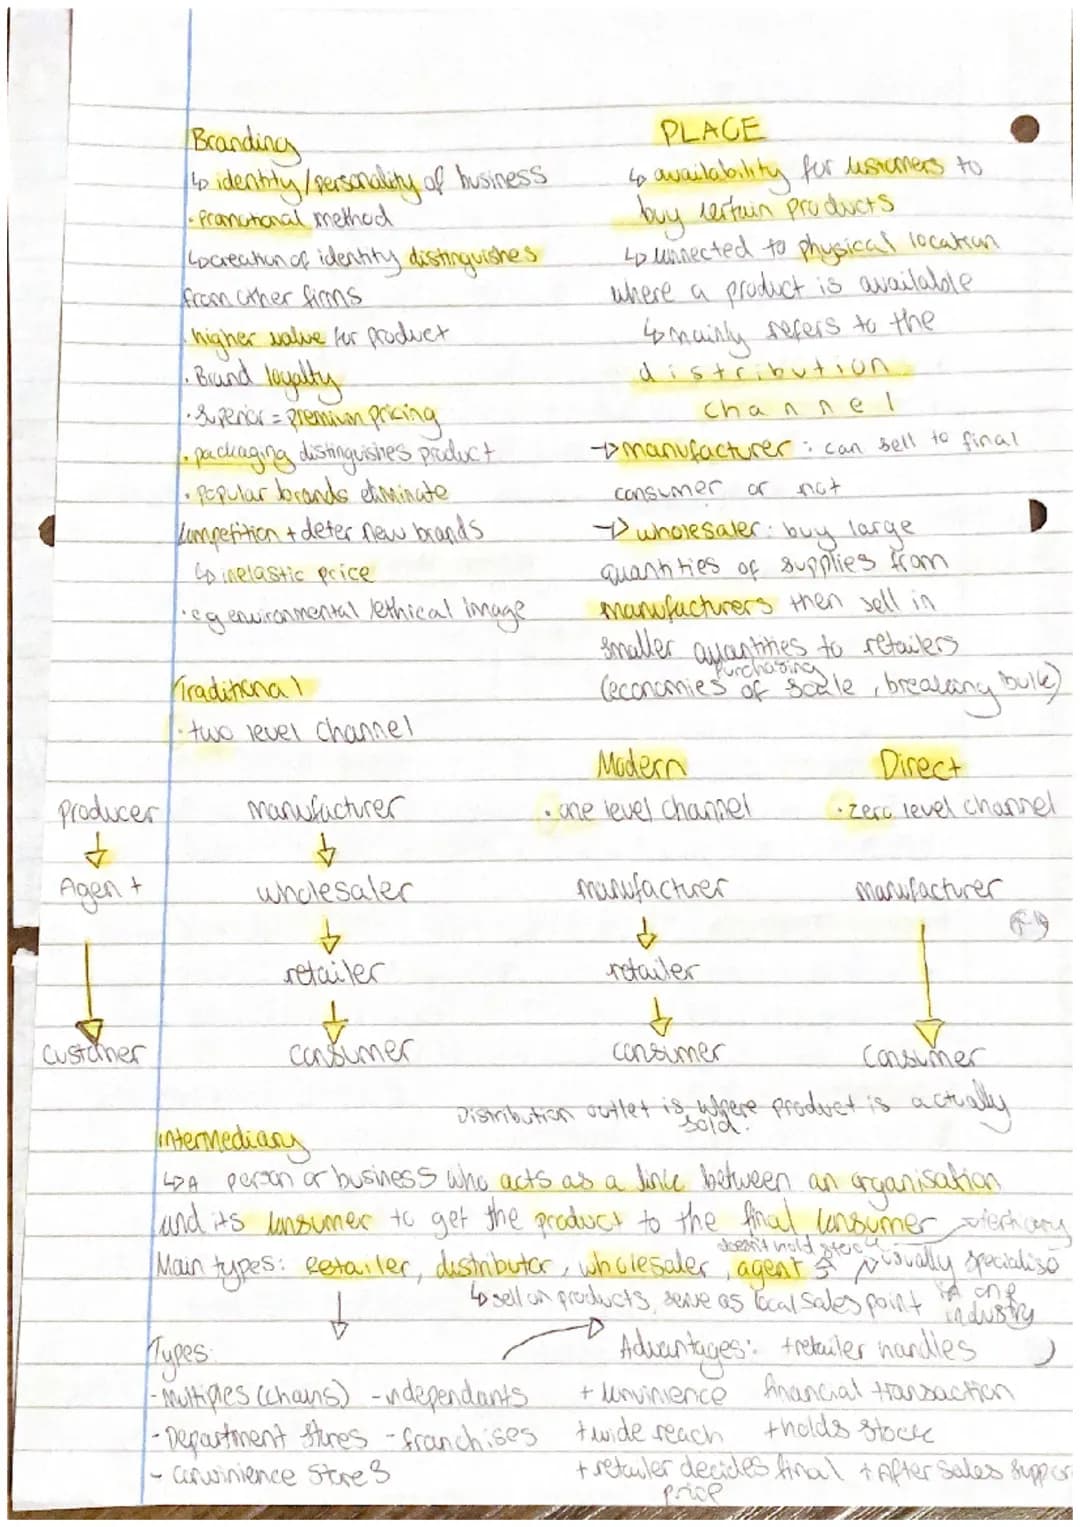 Branding
↳ identity/personality of business
· Promotional method
↳ creation of identity distinguishes
from other firms
· higher value for product
· Brand loyalty
· Superior = premium pricing
· packaging distinguishes product
· Popular brands eliminate
competition + deter new brands
↳ inelastic price
· eg environmental/ethical image
PLACE
↳ availability for customers to
buy certain products
↳ connected to physical location
where a product is available
↳ mainly refers to the
distribution
channel
→ manufacturer : can sell to final
consumer or not
→ wholesaler : buy large
quantities of supplies from
manufacturers then sell in
smaller quantities to retailers
purchasing
(economies of scale, breaking bulk)
Traditional
· two level channel
producer
↓
Agent
↓
customer
manufacturer
↓
wholesaler
↓
retailer
↓
consumer
Modern
· one level channel
manufacturer
↓
retailer
↓
consumer
Direct
· zero level channel
manufacturer
↓
Consumer
Distribution outlet is where product is actually
sold.
Intermediary
↳ A person or business who acts as a link between an organisation
and its consumer to get the product to the final consumer
doesn't hold stock
Main types: Retailer, distributor, wholesaler, agent
usually specialise
in one
industry
↳ sell on products, serve as local sales point
Types:
- Multiples (chains) - independants
- Department stores - franchises
- convinience stores
Advantages: + retailer handles
+ convinience financial transaction
+ wide reach + holds stock
+ retailer decides final + After sales
price